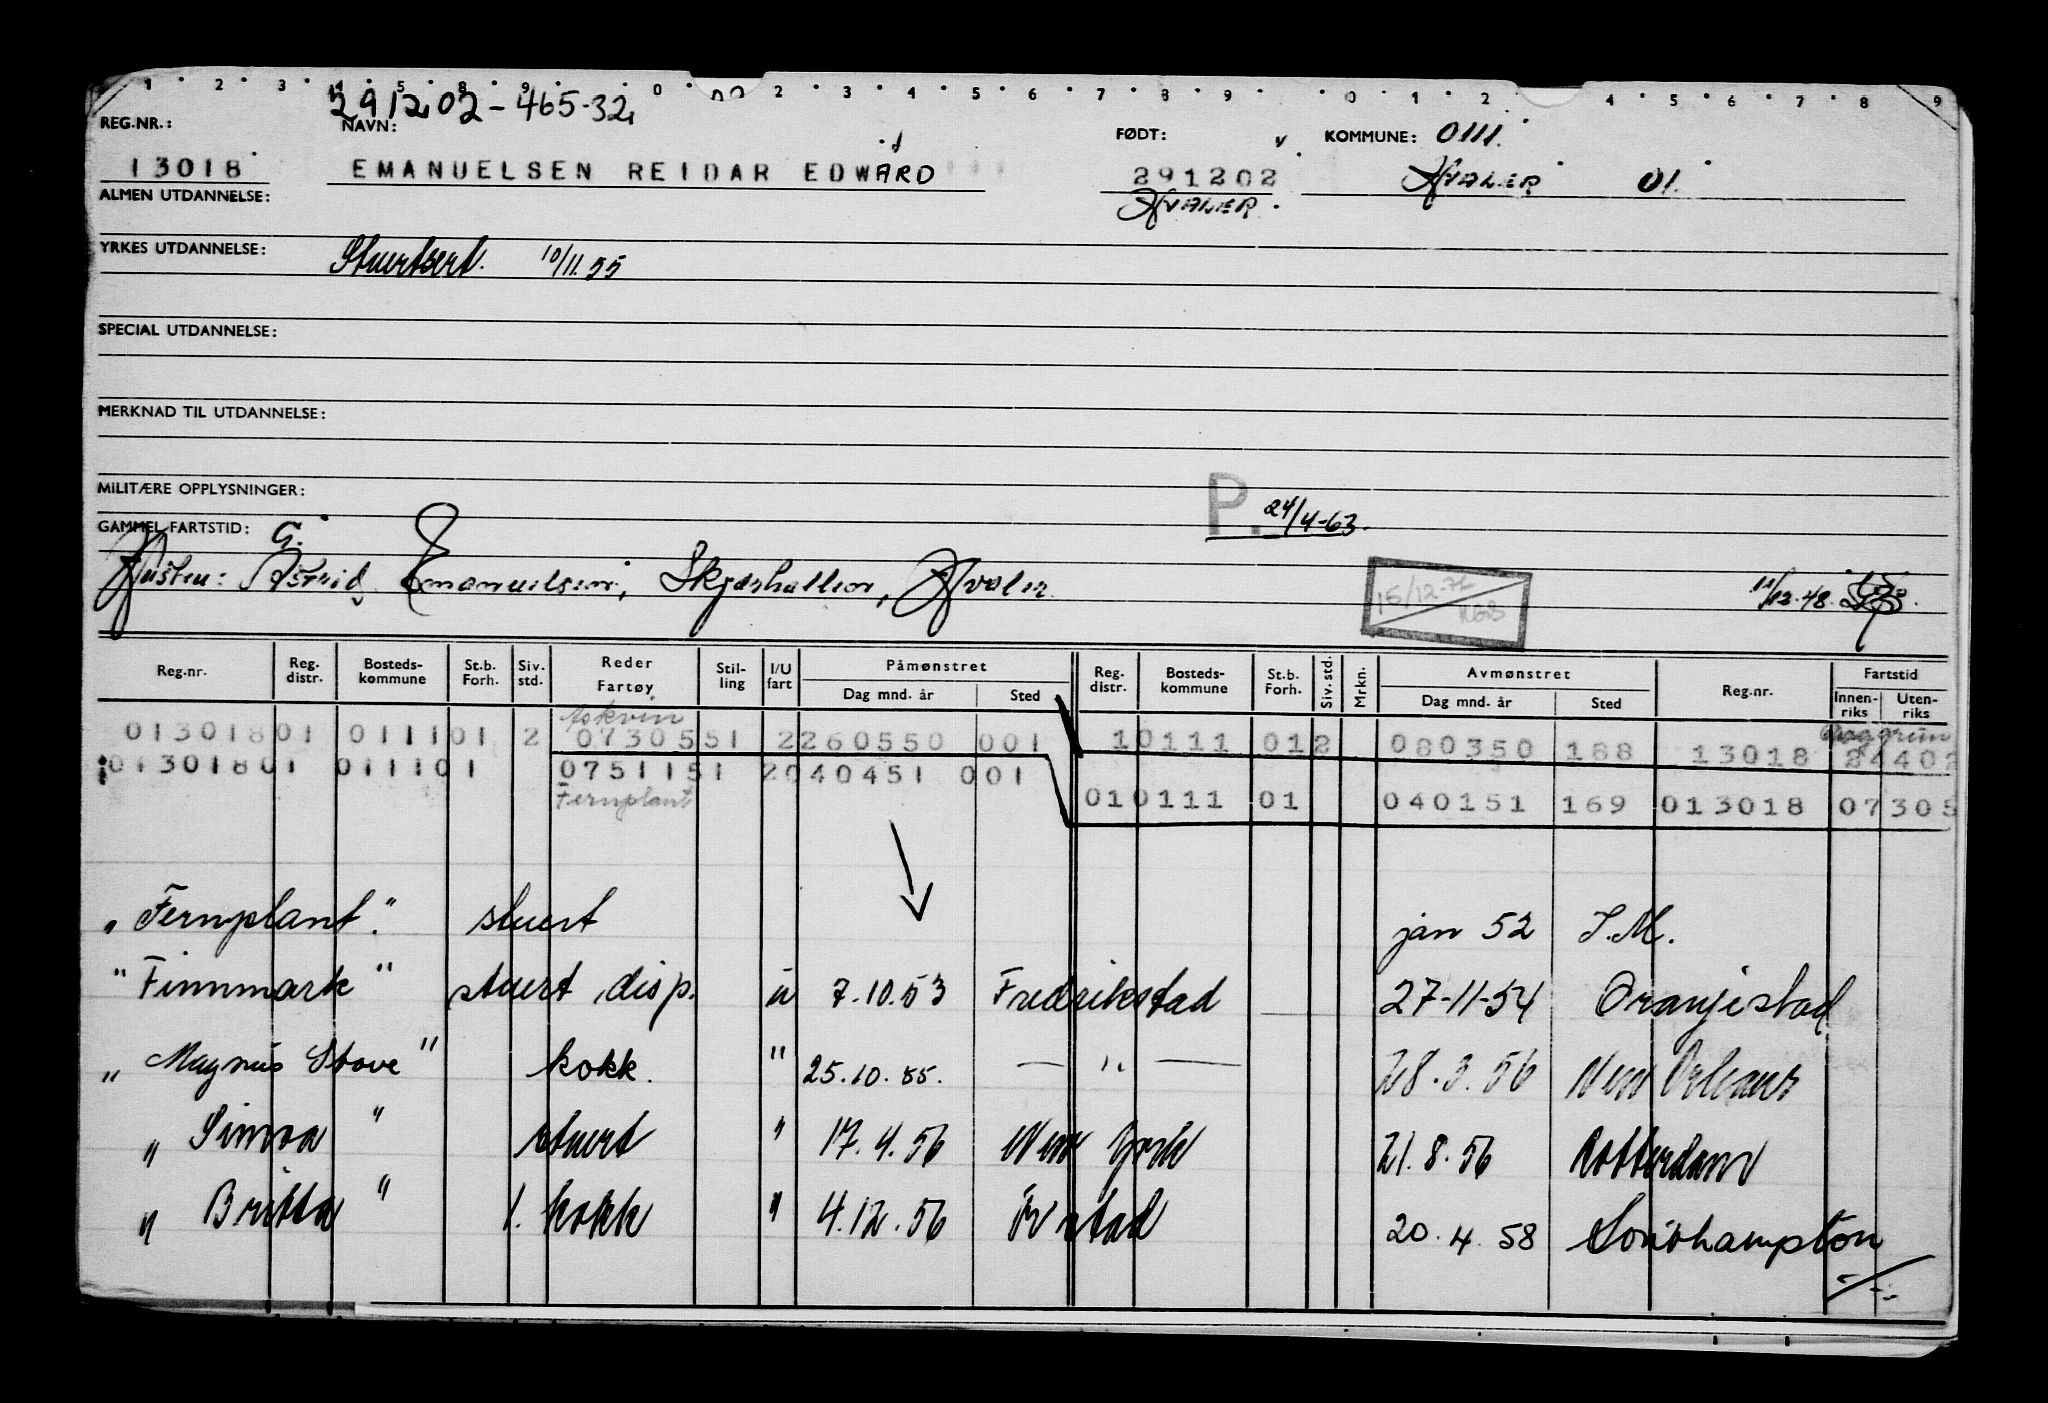 1 2 3 4 5 8 9 0 2 3 4 5 6 7 8 9 0 1 2 4 5 6 7 8 9
291202-465-32
REG.NR.: NAVN: FØDT: KOMMUNE: 0111
13018 EMANUELSEN REIDAR EDWARD 291202 HVALER 01.
ALMEN UTDANNELSE: HVALER.
YRKES UTDANNELSE: Stuertsert. 10/11.55
SPECIAL UTDANNELSE:
MERKNAD TIL UTDANNELSE:
MILITÆRE OPPLYSNINGER: P. 24/4-63.
GAMMEL FARTSTID: G.
Husteu: Astrid Emanuelsen, Skjærhallen, Hvaler 15/12-72 11/12.48.
Reg.nr. Reg. distr. Bosteds-kommune St.b. Forh. Siv. std. Reder Fartøy Stil-ling I/U fart Påmønstret Dag mnd. år Sted Reg. distr. Bosteds-kommune St.b. Forh. Siv. std. Mrkn. Avmønstret Dag mnd. år Sted Reg.nr. Fartstid Innen-riks Uten-riks
Askvin
01301801 011101 2 0730551 2260550 001 10111 012 080350 188 13018 24402
01301801 011101 0751151 2040451 001
Fernplant 010111 01 040151 169 013018 07305
"Fernplant." stuert jan 52 I.M.
"Finnmark" stuert, disp. u 7.10.53 Fredrikstad 27-11-54 Oranjestad
"Magnus Stove" kokk. " 25.10.55. — " — 28.3.56 New Orleans
"Simoa" stuert " 17.4.56 New York 21.8.56 Rotterdam
"Britta" 1. kokk " 4.12.56 Fr stad 20.4.58 Southampton